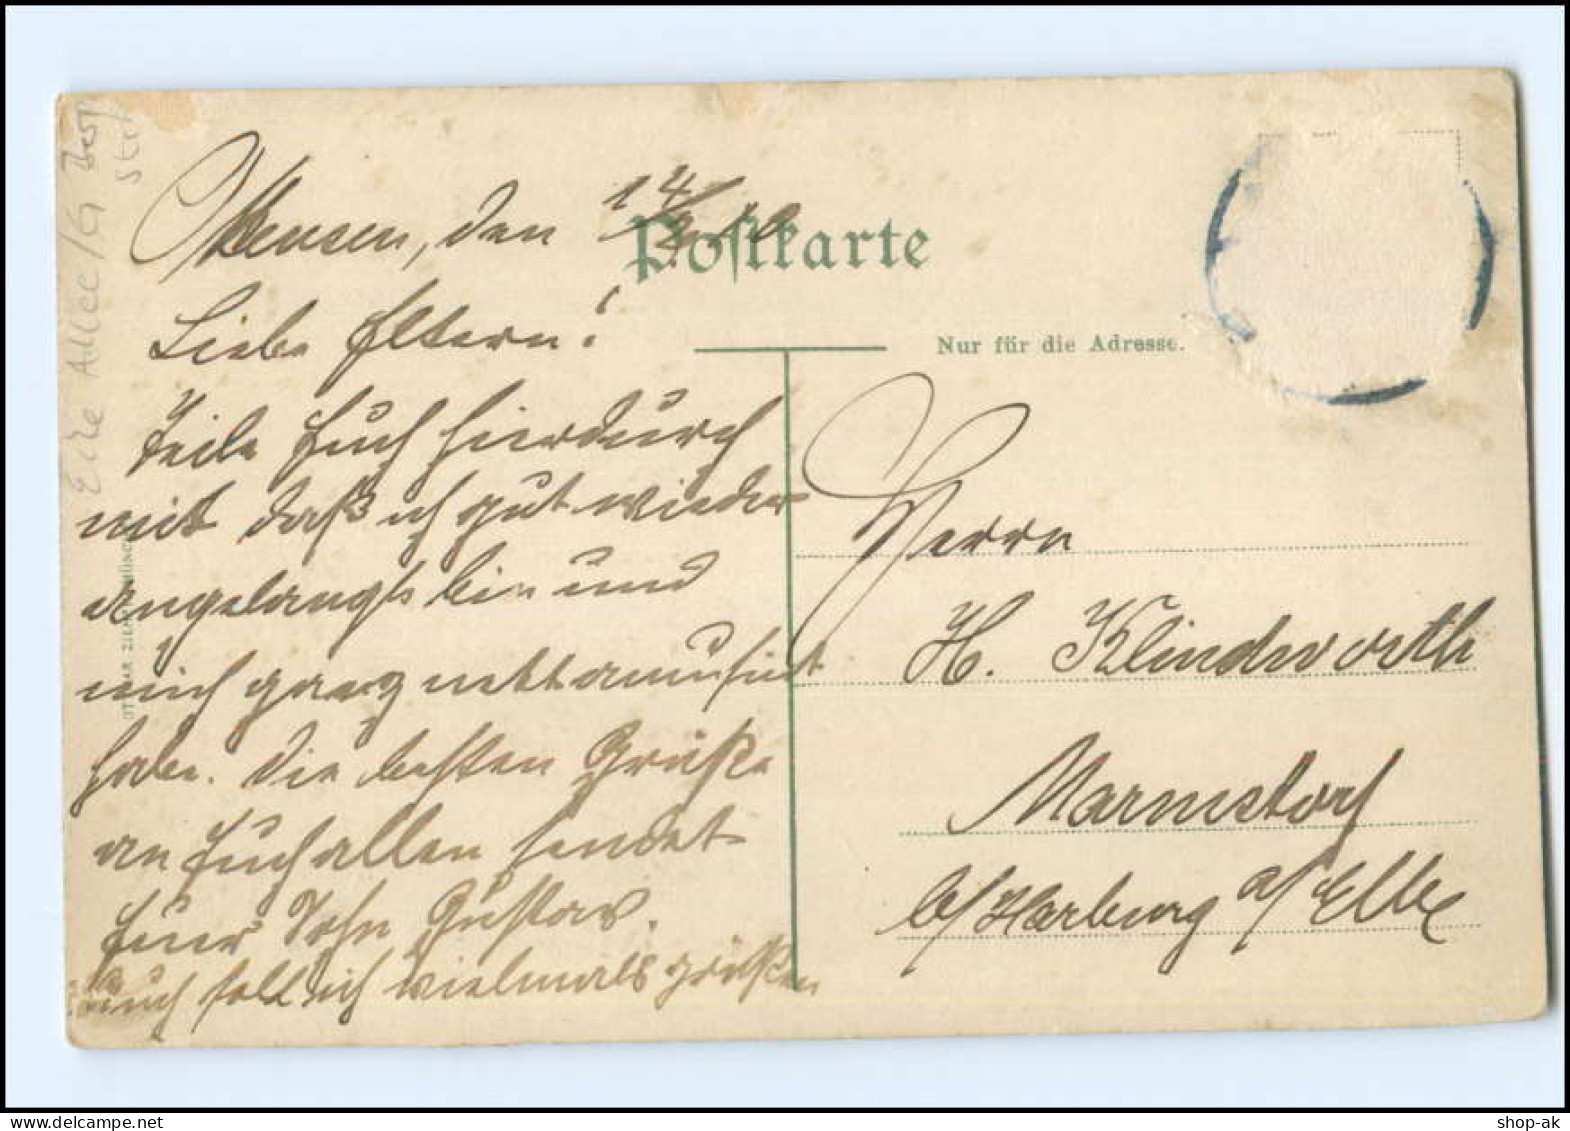 Ottensen, den 14/2. 10
Liebe Eltern!
Teile Euch hierdurch
mit daß ich gut wieder
angelangt bin und
mich ganz nett amusirt
habe. Die besten Grüße
an Euch allen sendet
Euer Sohn Gustav.
Euch soll ich vielmals grüßen
Postkarte
Nur für die Adresse.
Herrn
H. Klindworth
Marmstorf
b/Harburg a/Elbe
shop-ak